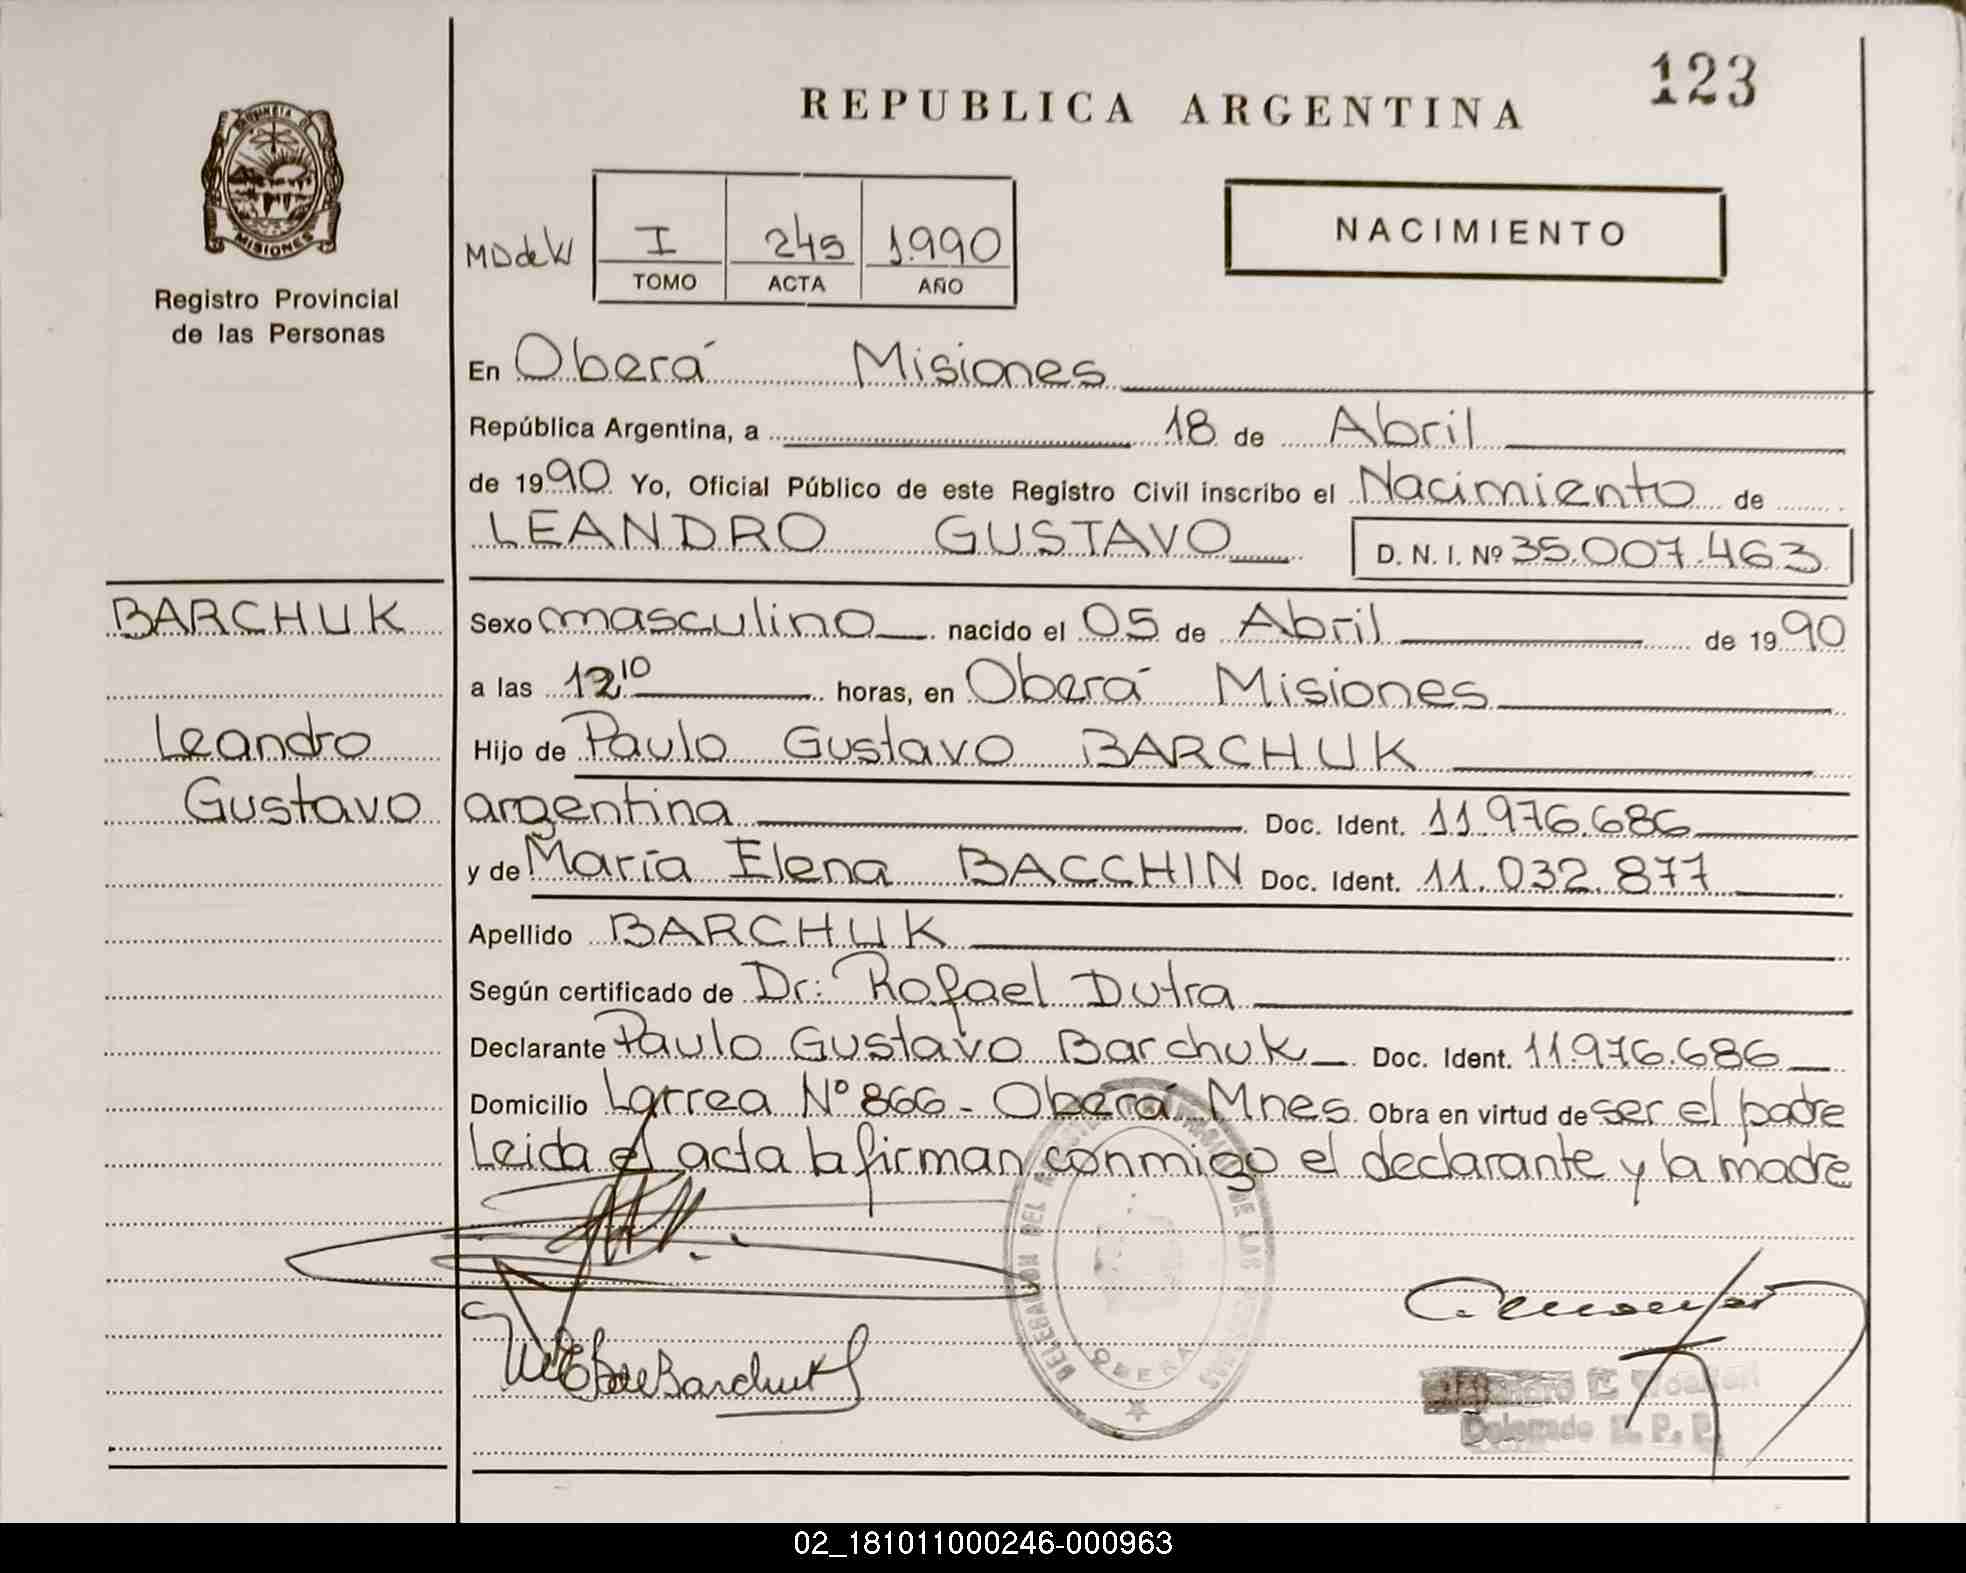 123
REPUBLICA ARGENTINA
PROVINCIA DE
MISIONES
Registro Provincial
de las Personas
I 245 1.990
TOMO ACTA AÑO
NACIMIENTO
En Oberá Misiones
República Argentina, a 18 de Abril
de 1990 Yo, Oficial Público de este Registro Civil inscribo el Nacimiento de
LEANDRO GUSTAVO D. N. I. Nº 35.007.463
BARCHUK
Leandro
Gustavo
Sexo masculino nacido el 05 de Abril de 1990
a las 12¹⁰ horas, en Oberá Misiones
Hijo de Paulo Gustavo BARCHUK
argentina Doc. Ident. 11.976.686
y de María Elena BACCHIN Doc. Ident. 11.032.877
Apellido BARCHUK
Según certificado de Dr: Rafael Dutra
Declarante Paulo Gustavo Barchuk Doc. Ident. 11.976.686
Domicilio Larrea Nº 866 - Oberá Mnes. Obra en virtud de ser el padre
Leida el acta la firman conmigo el declarante y la madre
DELEGACION DEL REGISTRO PROVINCIAL DE LAS PERSONAS
OBERA
de Barchuk
Delegado R. P. P.
02_181011000246-000963